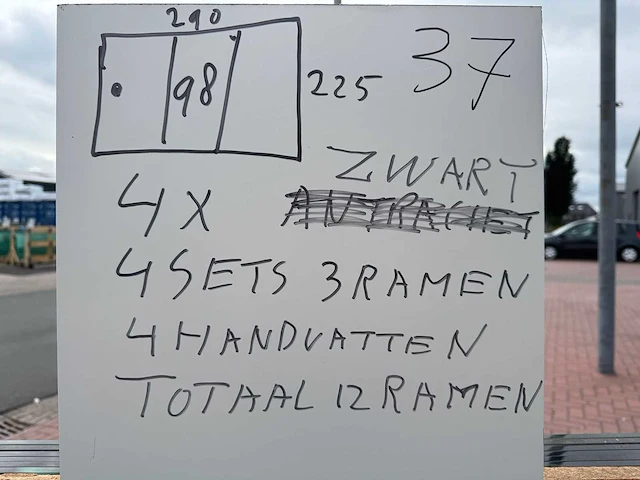 290
98
225
37
ZWART
4 X ANTRACIET
4 SETS 3 RAMEN
4 HANDVATTEN
TOTAAL 12 RAMEN